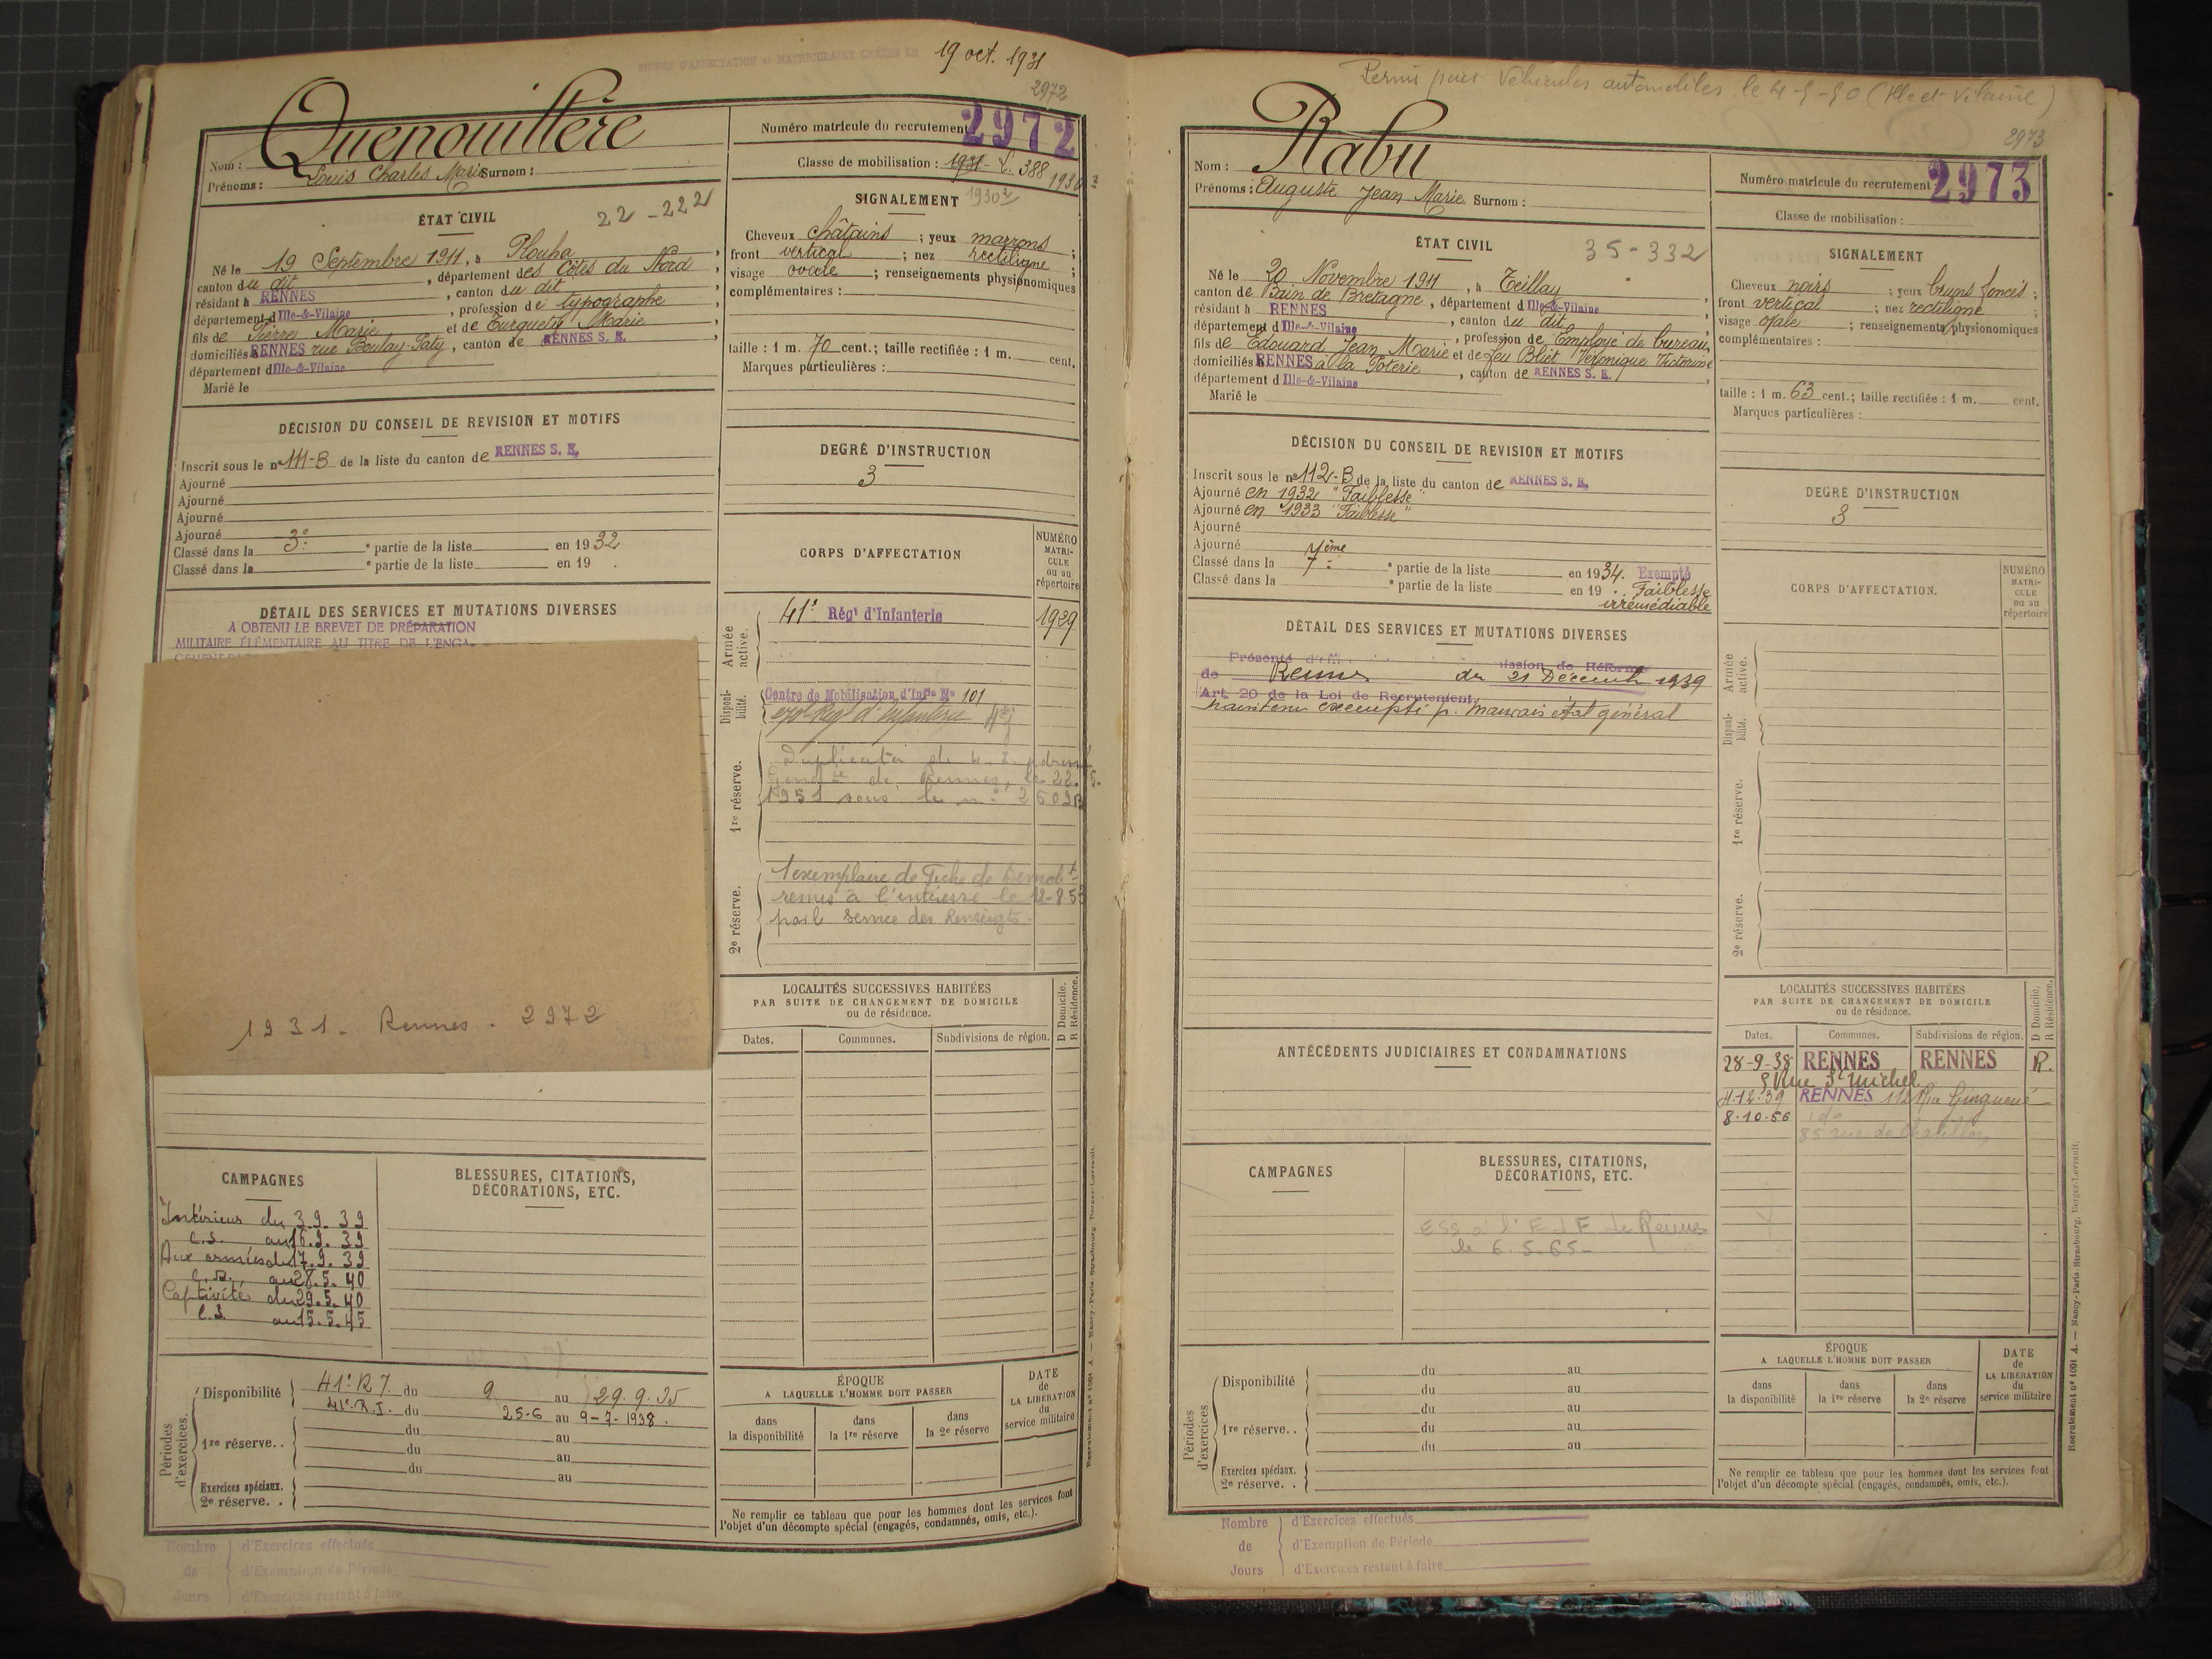 FICHES D'AFFECTATION et MATRICULAIRE CRÉÉES LE 19 oct. 1931
2972
Nom : Quenouillère
Prénoms : Louis Charles Marie Surnom :
Numéro matricule du recrutement 2972
Classe de mobilisation : 1931 - L. 388
1930
ÉTAT CIVIL
22-222
Né le 19 Septembre 1911, à Plouha,
canton du dit, département des Côtes du Nord,
résidant à RENNES, canton du dit,
département d'Ille-&-Vilaine, profession de typographe
fils de Pierre Marie et de Turquety Marie,
domiciliés à RENNES rue Boulay-Paty, canton de RENNES S. E.
département d'Ille-&-Vilaine
Marié le
SIGNALEMENT
Cheveux châtains ; yeux marrons ;
front vertical ; nez rectiligne ;
visage ovale ; renseignements physionomiques
complémentaires :
taille : 1 m. 70 cent.; taille rectifiée : 1 m. cent.
Marques particulières :
DÉCISION DU CONSEIL DE REVISION ET MOTIFS
Inscrit sous le n° 111-B de la liste du canton de RENNES S. E.
Ajourné
Ajourné
Ajourné
Ajourné
Classé dans la 3e partie de la liste en 1932
Classé dans la e partie de la liste en 19 .
DEGRÉ D'INSTRUCTION
3
DÉTAIL DES SERVICES ET MUTATIONS DIVERSES
A OBTENU LE BREVET DE PRÉPARATION
MILITAIRE ÉLÉMENTAIRE AU TITRE DE L'ENGA-
1931 - Rennes - 2972
CORPS D'AFFECTATION
NUMÉRO MATRICULE ou au répertoire
Armée active.
41e Régt d'Infanterie 1929
Disponibilité.
Centre de Mobilisation d'Infie No 101
270e Régt d'Infanterie
1re réserve.
Duplicata de
de Rennes, le 22.5.
1951 sous le n°
2e réserve.
1 exemplaire de Fiche de Démobt
remis à l'intéressé le 12-8-53
par le Service des Renseigts.
LOCALITÉS SUCCESSIVES HABITÉES
PAR SUITE DE CHANGEMENT DE DOMICILE
ou de résidence.
D Domicile. R Résidence.
Dates. Communes. Subdivisions de région.
CAMPAGNES
Intérieur du 3.9.39
C.S. au 16.9.39
Aux armées du 17.9.39
C.D. au 28.5.40
Captivité du 29.5.40
C.S. au 15.5.45
BLESSURES, CITATIONS,
DÉCORATIONS, ETC.
Périodes d'exercices.
Disponibilité 41e R I. du 9 au 29.9.35
41e R.I. du 25-6 au 9-7-1938.
du au
1re réserve. . du au
du au
Exercices spéciaux.
2e réserve. .
ÉPOQUE
A LAQUELLE L'HOMME DOIT PASSER
dans la disponibilité
dans la 1re réserve
dans la 2e réserve
DATE de LA LIBÉRATION du service militaire
Ne remplir ce tableau que pour les hommes dont les services font
l'objet d'un décompte spécial (engagés, condamnés, omis, etc.).
Nombre de Jours
d'Exercices effectués
d'Exemption de Période
d'Exercices restant à faire
Permis pour Véhicules automobiles le 4-5-50 (Ille et Vilaine)
2973
Nom : Rabu
Prénoms : Auguste Jean Marie Surnom :
Numéro matricule du recrutement 2973
Classe de mobilisation :
ÉTAT CIVIL
35-332
Né le 20 Novembre 1911, à Teillay,
canton de Bain de Bretagne, département d'Ille-&-Vilaine
résidant à RENNES, canton du dit,
département d'Ille-&-Vilaine, profession de Employé de bureau,
fils de Edouard Jean Marie et de feu Bliet Véronique Victorine
domiciliés à RENNES à la Poterie, canton de RENNES S. E.
département d'Ille-&-Vilaine
Marié le
SIGNALEMENT
Cheveux noirs ; yeux bruns foncés ;
front vertical ; nez rectiligne ;
visage ovale ; renseignements physionomiques
complémentaires :
taille : 1 m. 63 cent.; taille rectifiée : 1 m. cent.
Marques particulières :
DÉCISION DU CONSEIL DE REVISION ET MOTIFS
Inscrit sous le n° 112-B de la liste du canton de RENNES S. E.
Ajourné en 1932 "Faiblesse"
Ajourné en 1933 "Faiblesse"
Ajourné
Ajourné
Classé dans la e partie de la liste en 1934. Exempté
Classé dans la e partie de la liste en 19 . . Faiblesse
irrémédiable
DEGRÉ D'INSTRUCTION
3
DÉTAIL DES SERVICES ET MUTATIONS DIVERSES
Présenté Commission de Réforme
de Rennes du 21 Décembre 1939
Art. 20 de la Loi de Recrutement
maintenu exempté p. mauvais état général
CORPS D'AFFECTATION.
NUMÉRO MATRICULE ou au répertoire
Armée active.
Disponibilité.
1re réserve.
2e réserve.
ANTÉCÉDENTS JUDICIAIRES ET CONDAMNATIONS
LOCALITÉS SUCCESSIVES HABITÉES
PAR SUITE DE CHANGEMENT DE DOMICILE
ou de résidence.
D Domicile. R Résidence.
Dates. Communes. Subdivisions de région.
28-9-38 RENNES RENNES R.
5 Rue St Michel
4.12.39 RENNES 112 Rue Ginguené
8.10.56 do
85 rue de Chatillon
CAMPAGNES
BLESSURES, CITATIONS,
DÉCORATIONS, ETC.
ESS à l'E d F de Rennes
le 6.5.65-
Périodes d'exercices
Disponibilité du au
du au
du au
1re réserve. . du au
du au
Exercices spéciaux.
2e réserve. .
ÉPOQUE
A LAQUELLE L'HOMME DOIT PASSER
dans la disponibilité
dans la 1re réserve
dans la 2e réserve
DATE de LA LIBÉRATION du service militaire
Ne remplir ce tableau que pour les hommes dont les services font
l'objet d'un décompte spécial (engagés, condamnés, omis, etc.).
Recrutement n° 1001 A. — Nancy-Paris-Strasbourg, Berger-Levrault.
Nombre de Jours
d'Exercices effectués
d'Exemption de Période
d'Exercices restant à faire